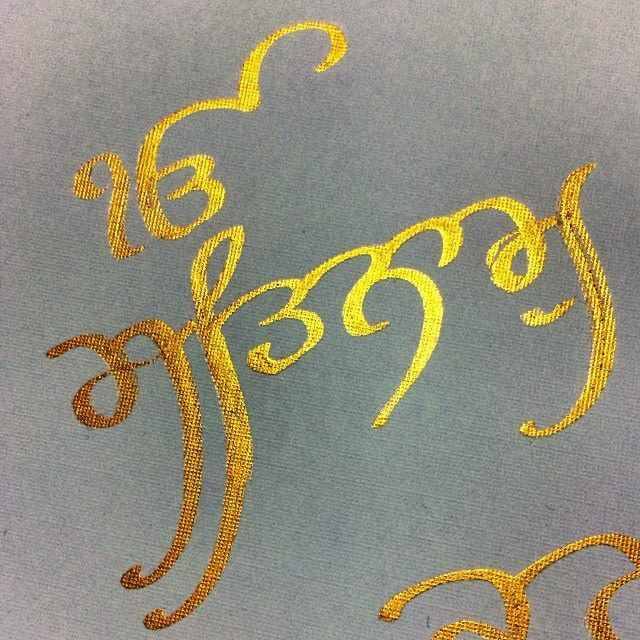 ੴ
ਸਤਿਨਾਮੁ